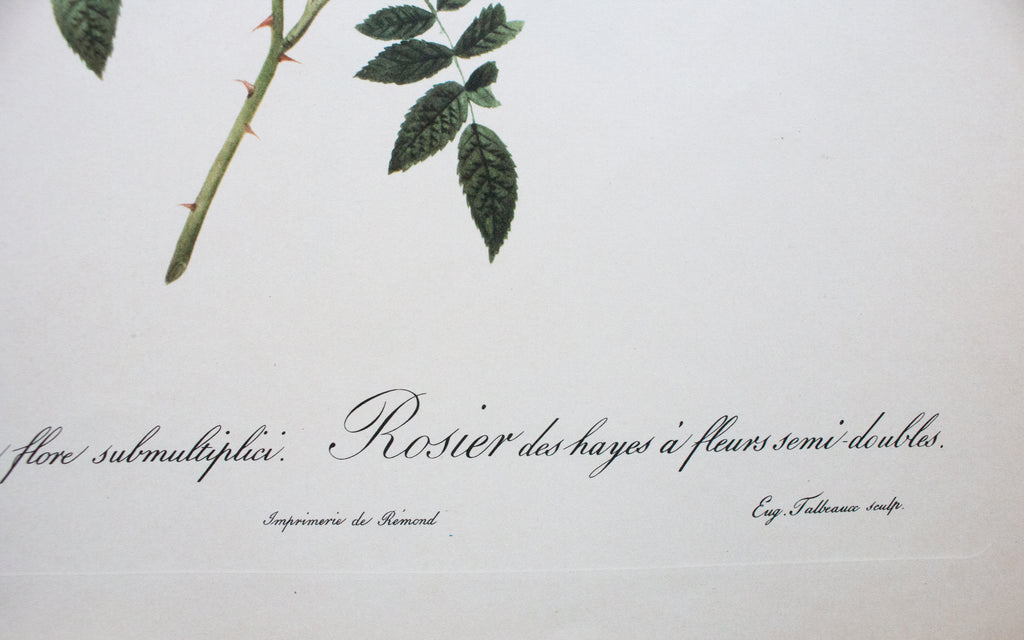 flore submultiplici. Rosier des hayes à fleurs semi-doubles.
Imprimerie de Rémond
Eug. Talbeaux sculp.